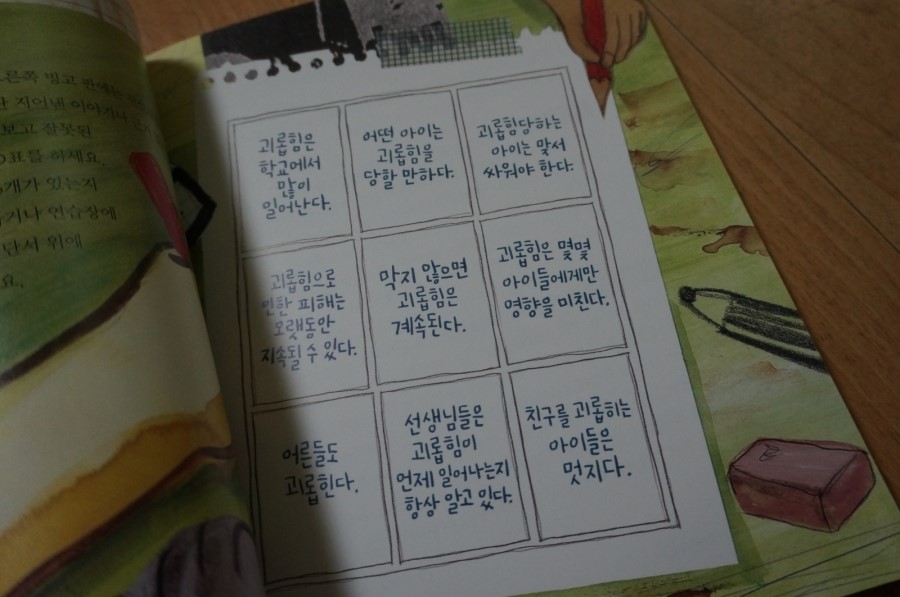 른쪽 빙고 판에는
지어낸 이야기나
보고 잘못된
O표를 하세요.
개가 있는지
거나 연습장에
단서 위에
요.
괴롭힘은
학교에서
많이
일어난다.
어떤 아이는
괴롭힘을
당할 만하다.
괴롭힘당하는
아이는 맞서
싸워야 한다.
괴롭힘으로
인한 피해는
오랫동안
지속될 수 있다.
막지 않으면
괴롭힘은
계속된다.
괴롭힘은 몇몇
아이들에게만
영향을 미친다.
어른들도
괴롭힌다.
선생님들은
괴롭힘이
언제 일어나는지
항상 알고 있다.
친구를 괴롭히는
아이들은
멋지다.